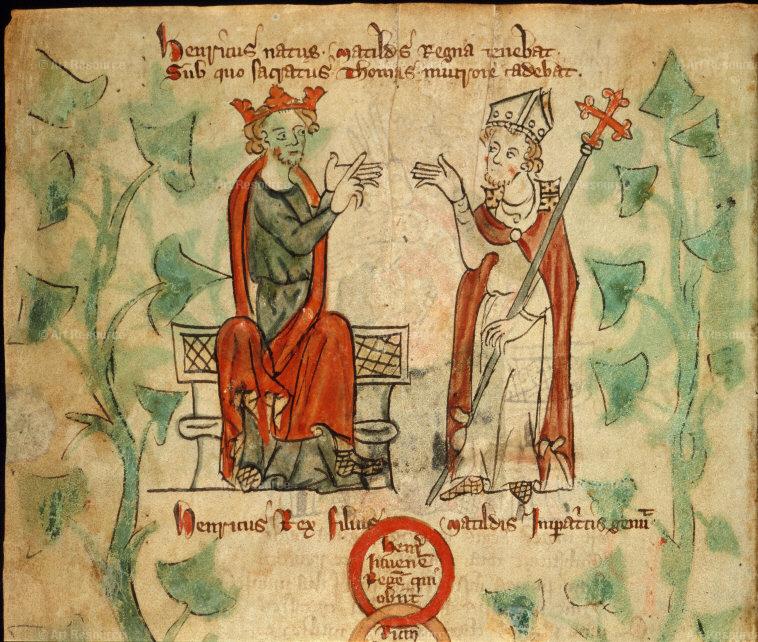 Henricus natus Matildis Regna tenebat.
Sub quo sacratus Thomas mucrone cadebat.
Henricus Rex filius Matildis Imperatricis genuit
Henr
iuuene
Rege qui
obiit
Ricus
© Art Resource